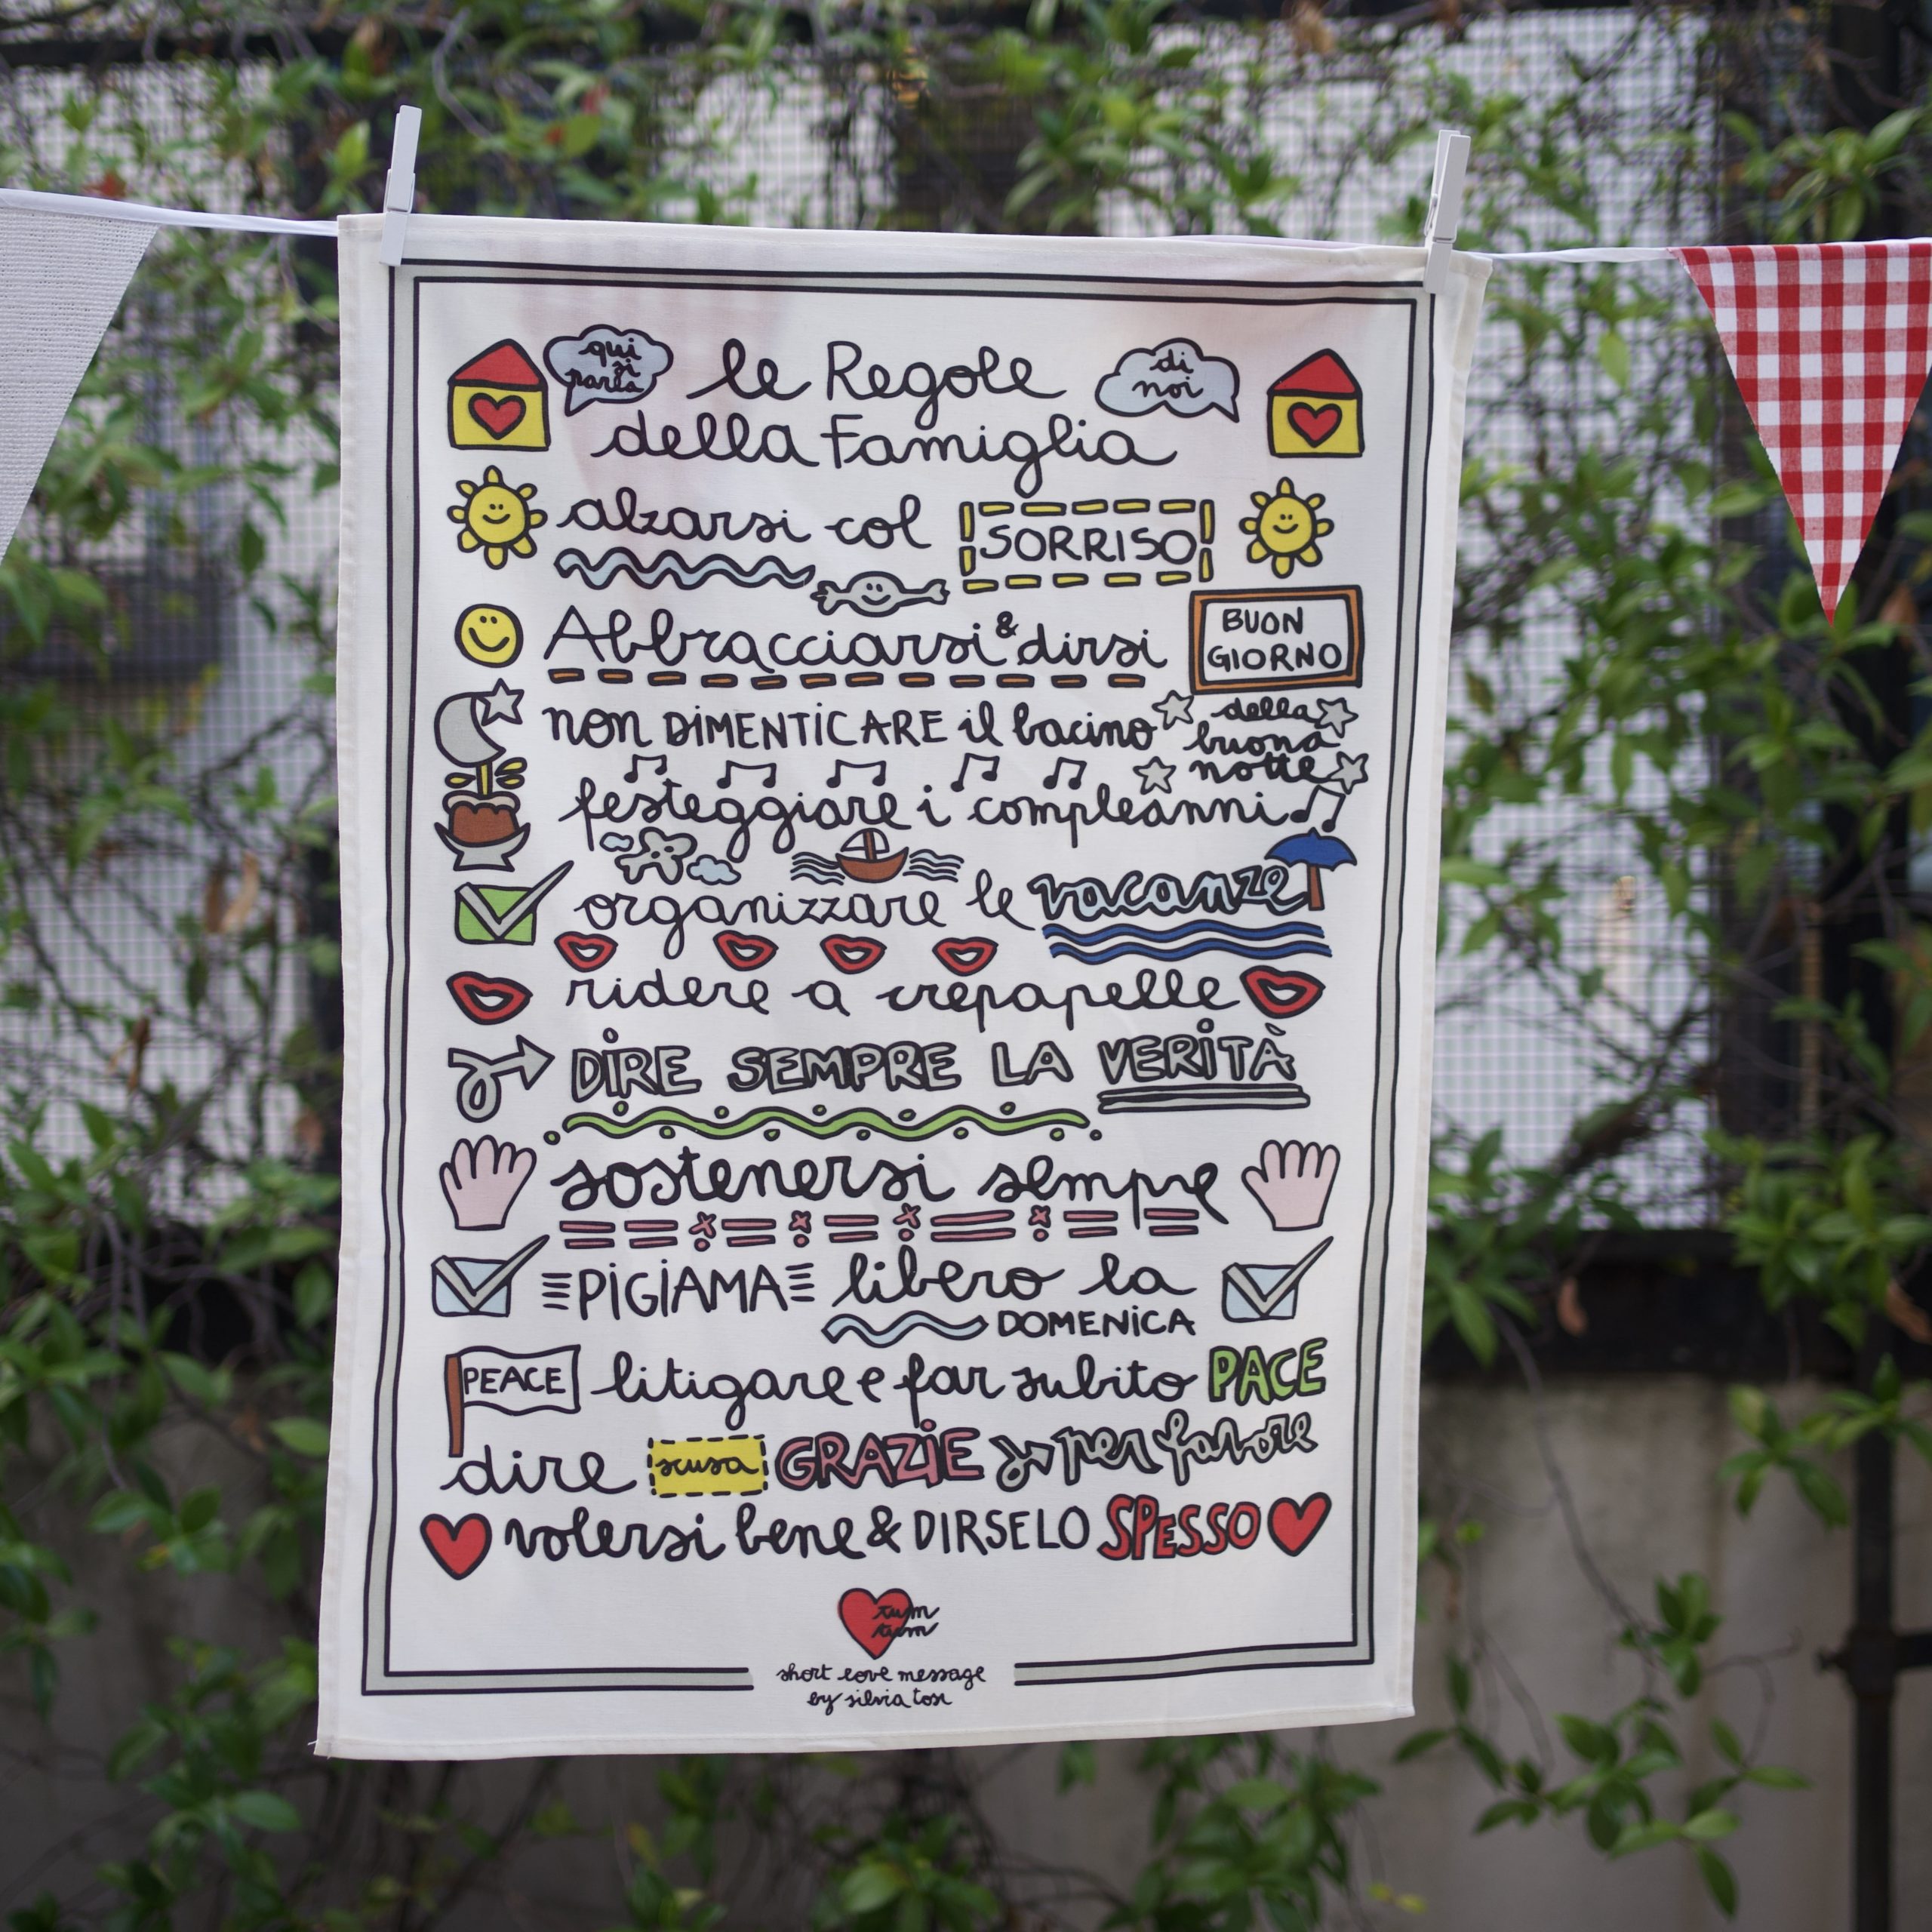 qui
si
parla
le Regole
di
noi
della Famiglia
alzarsi col SORRISO
Abbracciarsi & dirsi BUON
GIORNO
non DIMENTICARE il bacino della
buona
notte
festeggiare i compleanni
organizzare le vacanze
ridere a crepapelle
DIRE SEMPRE LA VERITÀ
sostenersi sempre
PIGIAMA libero la
DOMENICA
PEACE litigare e far subito PACE
dire scusa GRAZIE per favore
volersi bene & DIRSELO SPESSO
tum
tum
short love message
by silvia tosi